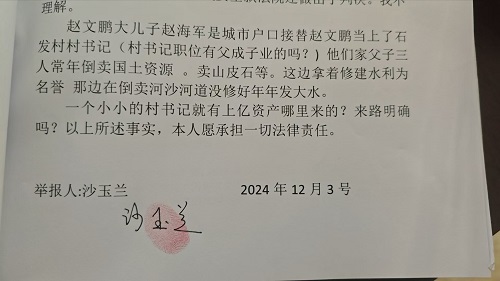 理解。
赵文鹏大儿子赵海军是城市户口接替赵文鹏当上了石
发村村书记（村书记职位有父成子业的吗？）他们家父子三
人常年倒卖国土资源 。卖山皮石等。这边拿着修建水利为
名誉 那边在倒卖河沙河道没修好年年发大水。
一个小小的村书记就有上亿资产哪里来的？来路明确
吗？以上所述事实，本人愿承担一切法律责任。
举报人:沙玉兰 2024 年 12 月 3 号
沙玉兰